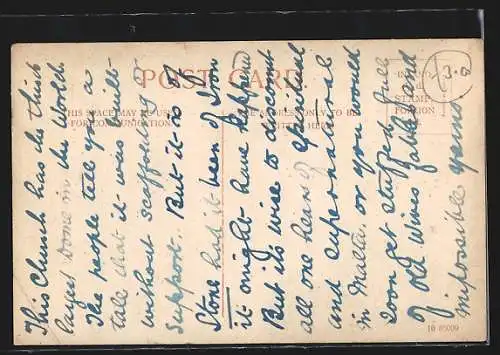 This Church has the third
largest Dome in the World.
The people tell you a
tale that it was built
without scaffolding or
support. But it is of
Stone had it been of Iron
it might have happened
But its wise to discount
all one hears of spiritual
and supernatural
in Malta. or you would
soon get stuffed full
of old wives fables and
impossible yarns
POST CARD
THIS SPACE MAY BE USED
FOR COMMUNICATION
THE ADDRESS ONLY TO BE
WRITTEN HERE
STAMP
FOREIGN